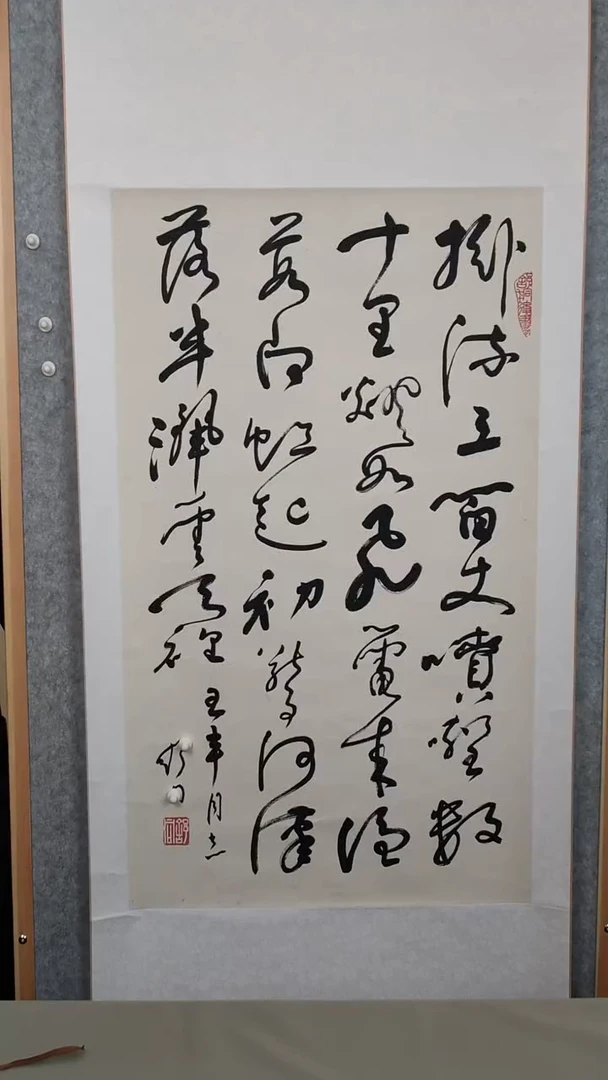 掛流三百丈噴壑數
十里如飛電來隱
若白虹起初驚河漢
落半灑雲天裡
同志
舒同
舒同